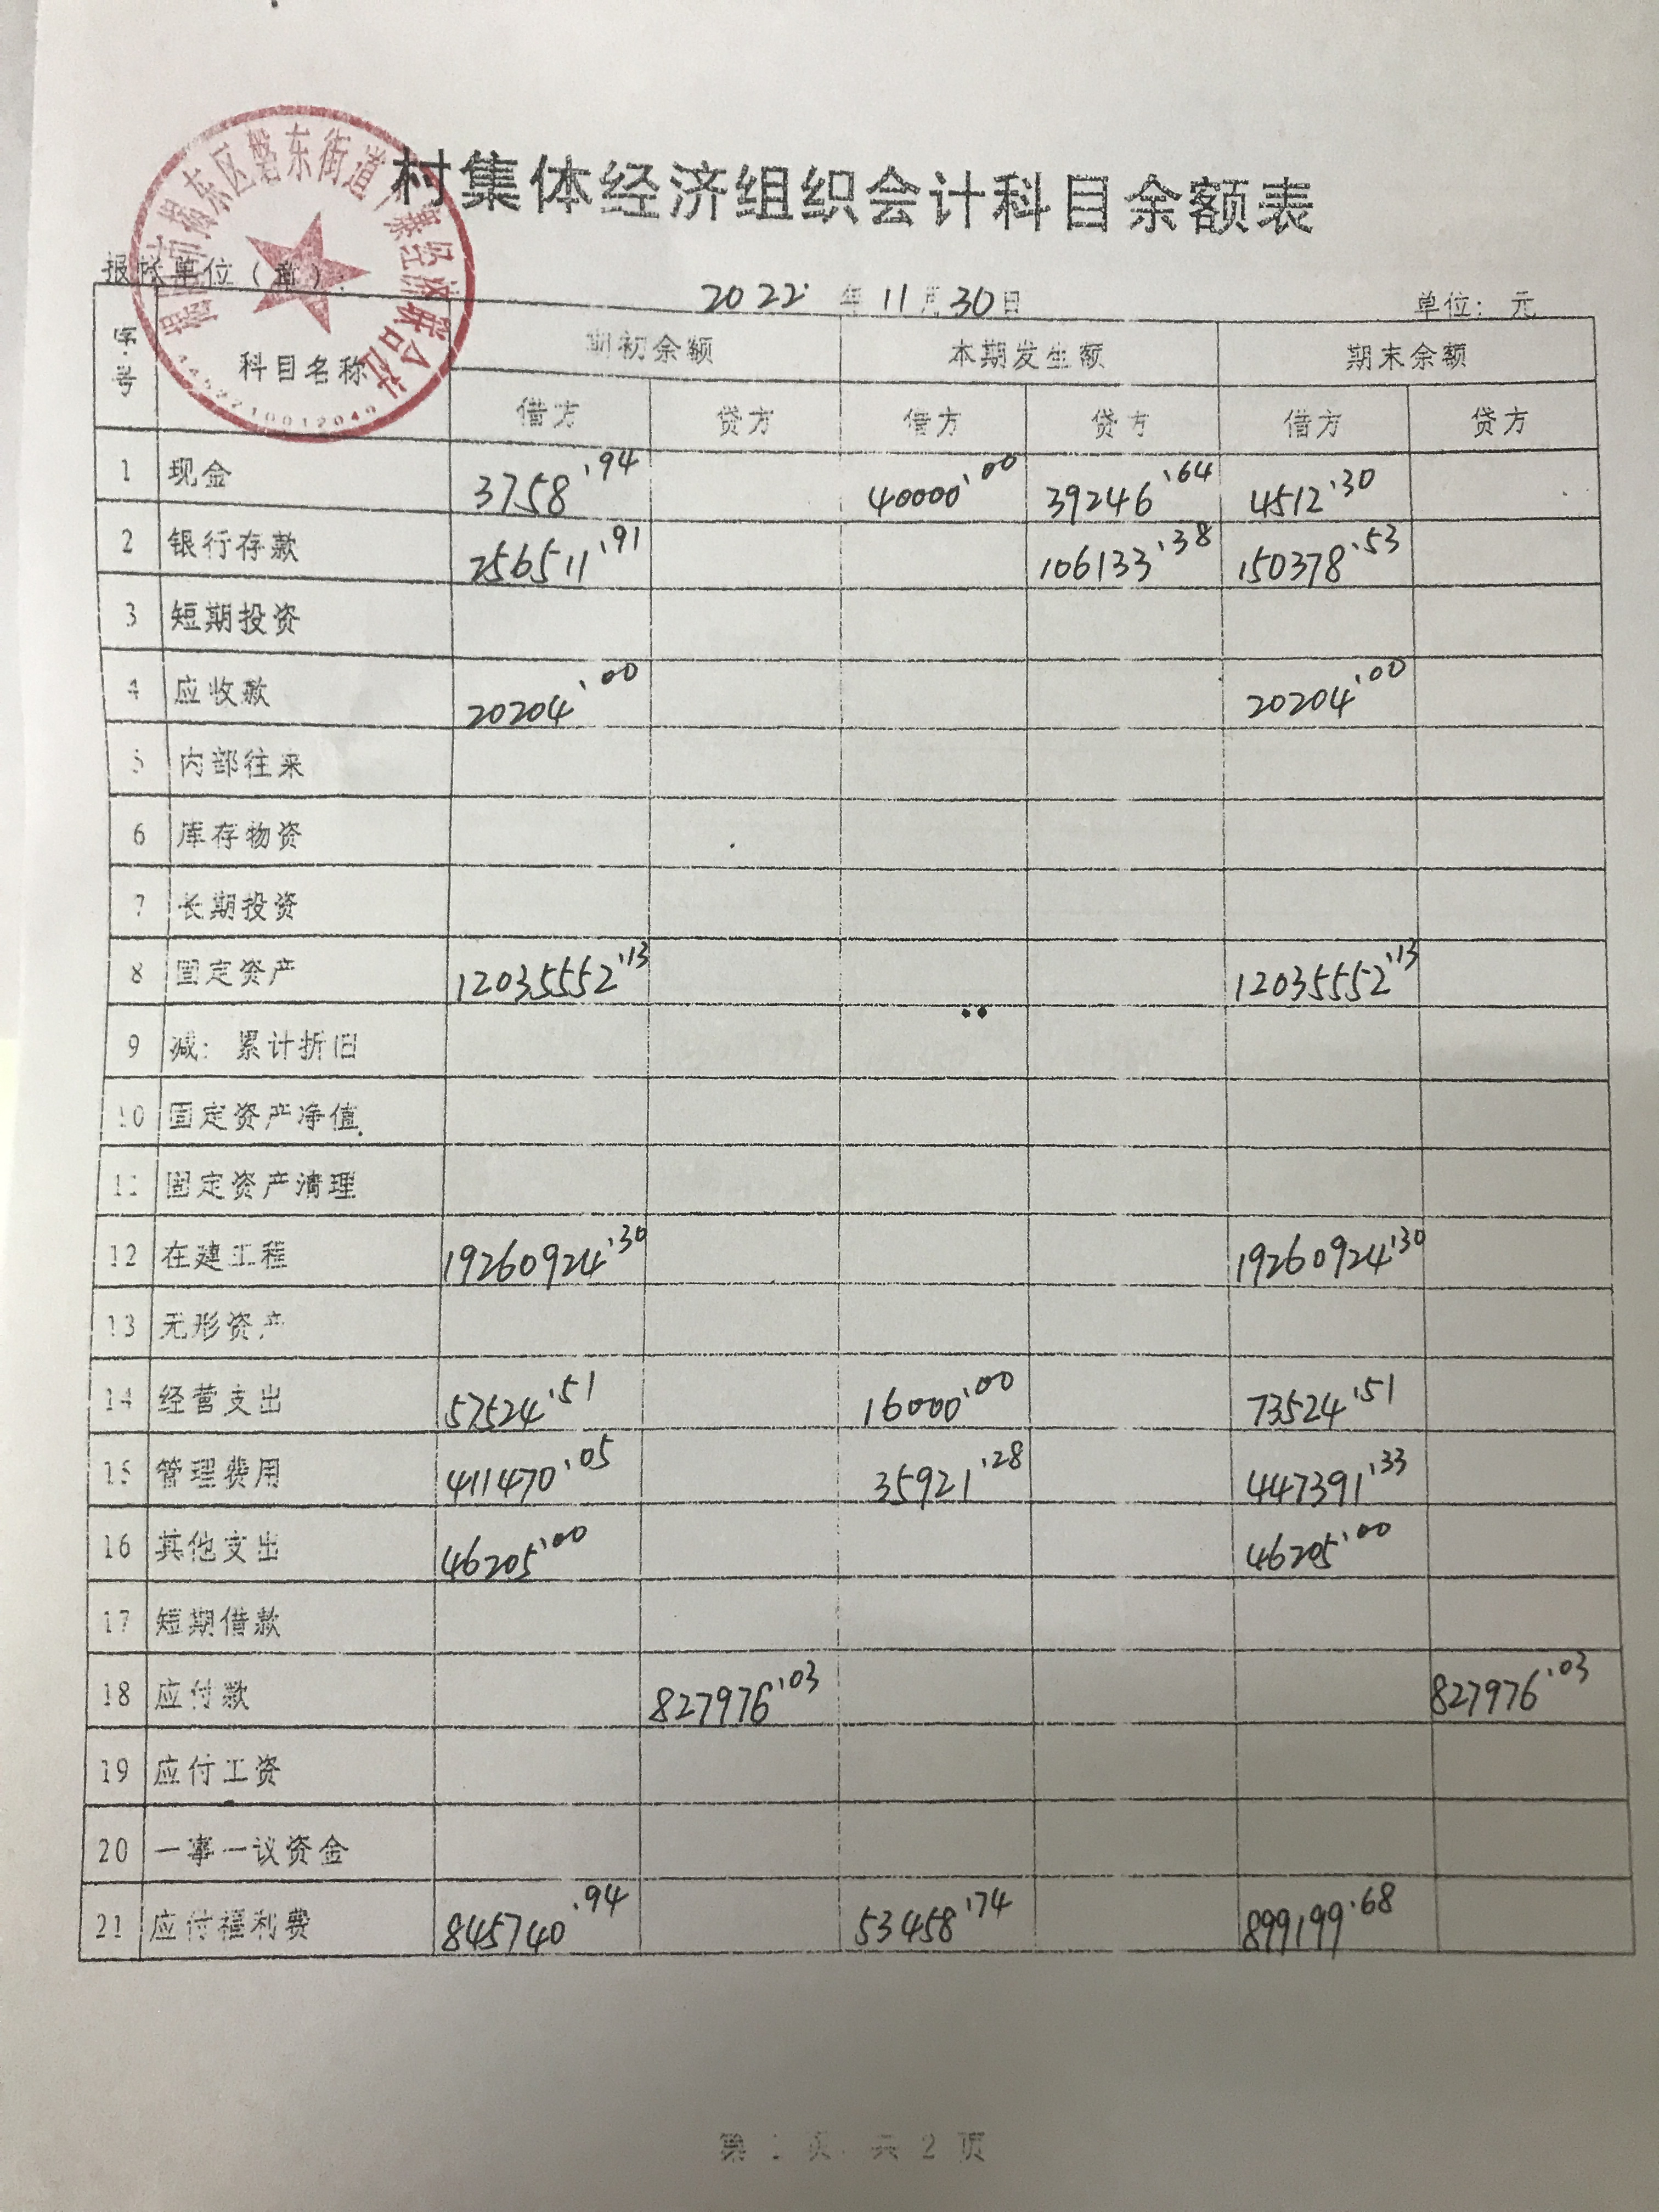 村集体经济组织会计科目余额表
揭东区磐东街道 寨经济联合社
报帐单位（章）：
2022年11月30日 单位：元
字号 科目名称 期初余额 本期发生额 期末余额
借方 贷方 借方 贷方 借方 贷方
1 现金 3758.94 40000.00 39246.64 4512.30
2 银行存款 256511.91 106133.38 150378.53
3 短期投资
4 应收款 20204.00 20204.00
5 内部往来
6 库存物资
7 长期投资
8 固定资产 12035552.13 12035552.13
9 减：累计折旧
10 固定资产净值
11 固定资产清理
12 在建工程 19260924.30 19260924.30
13 无形资产
14 经营支出 57524.51 16000.00 73524.51
15 管理费用 411470.05 35921.28 447391.33
16 其他支出 46205.00 46205.00
17 短期借款
18 应付款 827976.03 827976.03
19 应付工资
20 一事一议资金
21 应付福利费 845740.94 53458.74 899199.68
第1页 共2页